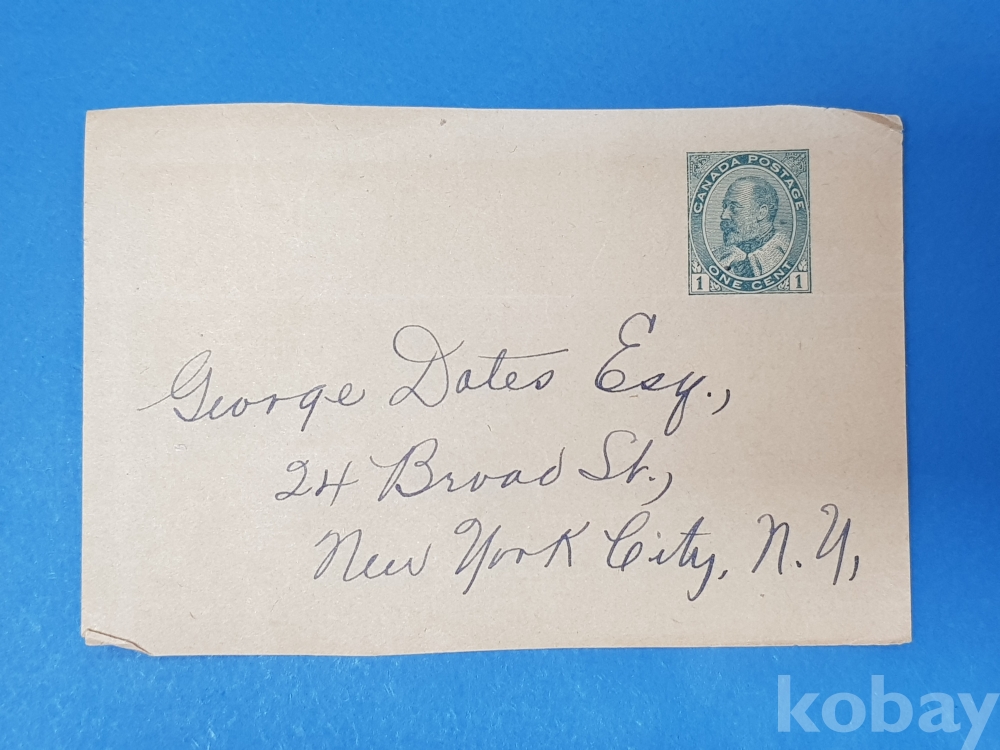 CANADA POSTAGE
ONE CENT
1 1
George Dates Esq.,
24 Broad St.,
New York City, N.Y,
kobay